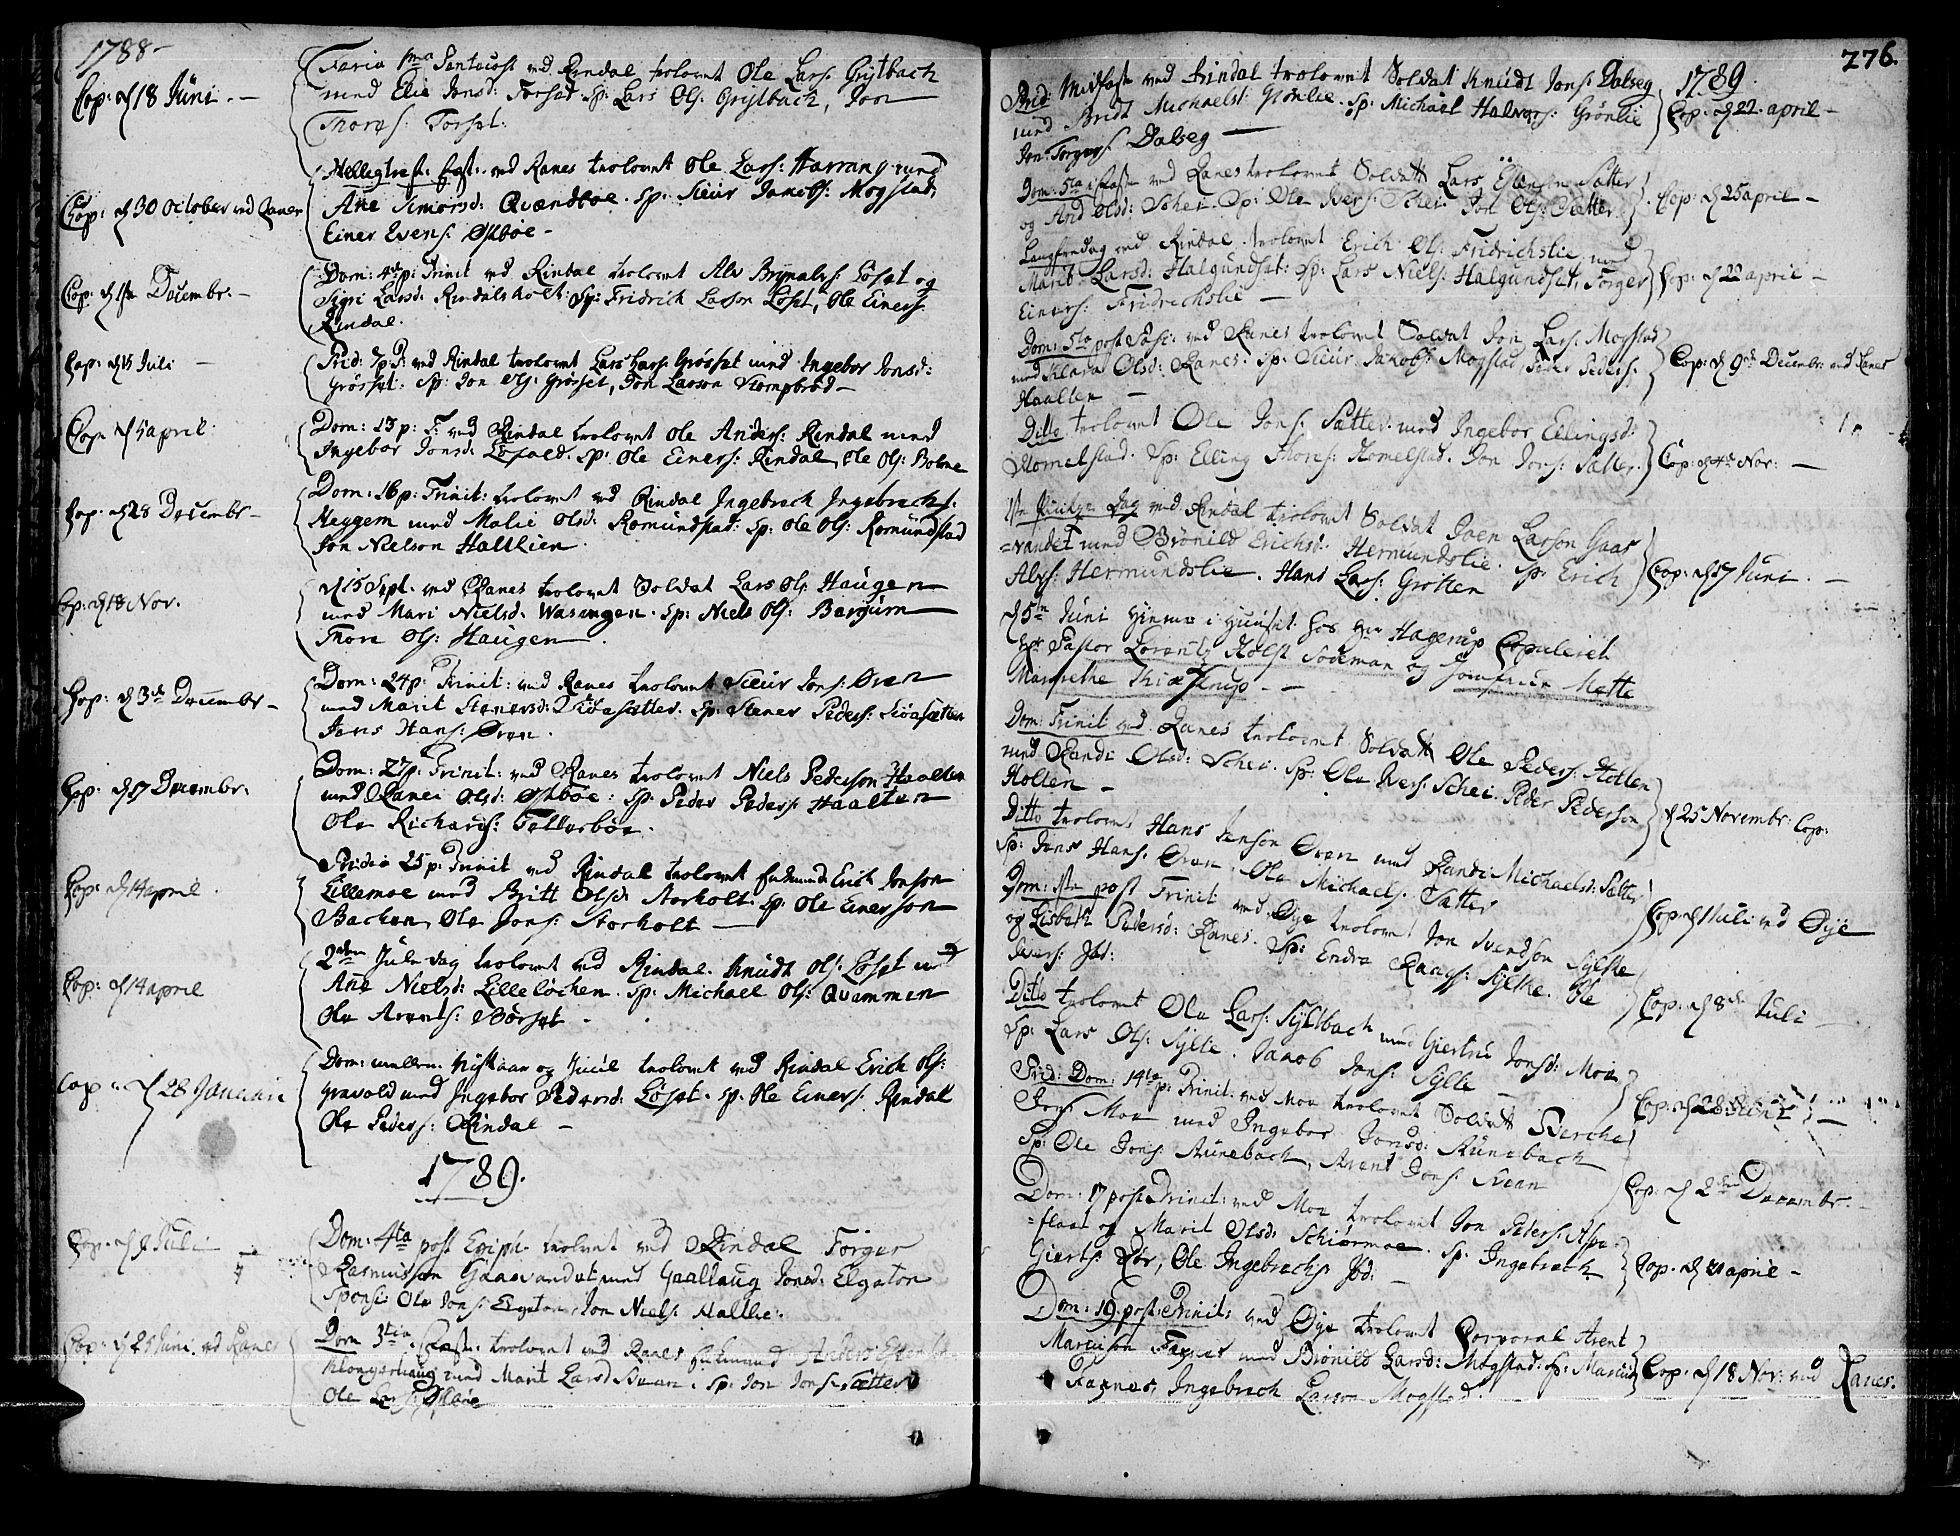 1788-
Cop: d 18 Juni. -
Feria 1ma Pentecost ved Rindal trolovet Ole Lars: Grytbach
med Elie Jonsd: Forset Sp: Lars Ols: Grytbach, Jon
Thores: Forset.
Cop: d 30 October ved Ranes
Helligtrefr: fest: ved Ranes trolovet Ole Lars: Harrang med
Ane Simonsd: Qvændboe. Sp: Siur Jacobs: Mogstad,
Einer Evens: Østbøe -
Cop: d 1ste Decembr. -
Dom: 4de p: Trinit ved Rindal trolovet Alv Brynalvs: Løset og
Sigri Larsd: Rindalsholt: Sp: Fridrich Larson Løset, Ole Einers:
Rindal.
Cop: d 15 Juli -
Frid: 7 p: T: ved Rindal trolovet Lars Lars: Grøsset med Ingebor Jonsd:
Grøsset: Sp: Jon Ols: Grøsset, Jon Larson Stompbrød -
Cop d 15 april.
Dom: 13 p: T: ved Rindal trolovet Ole Anders: Rindal med
Ingebor Jonsd: Løsvold. Sp: Ole Einers: Rindal, Ole Ols: Bolme
Cop: d 28 Decembr -
Dom: 16 p: Trinit: trolovet ved Rindal Ingebrech Ingebrechts:
Heggem med Malie Olsd: Romundstad: Sp: Ole Ols: Romundstad
Jon Nielson Hallien.
Cop: d 18 Nov.
d 15 Sept. ved Ranes trolovet Soldat Lars Ols: Haugen
med Mari Nielsd: Wasengen. Sp: Niels Ols: Bergum
Thore Ols: Haugen.
Cop: d 3de Decembr -
Dom: 24 p: Trinit: ved Ranes trolovet Siur Jons: Øren
med Marit Stenersd: Sioasætter. Sp: Stener Peders: Sioasætter
Jens Hans: Øren.
Cop: d 17 Decembr.
Dom: 27 p: Trinit: ved Ranes trolovet Niels Pederson Haalten
med Ranei Olsd: Østbøe: Sp: Peder Peders: Haalten
Ole Richards: Tellesbøe.
Cop: d 14 april.
Fridai 25 p: Trinit ved Rindal trolovet Enkemand Erich Jonson
Lillemoe med Britt Olsd: Storholt: Sp: Ole Einerson
Backen, Ole Jons: Storholt -
Cop: d 14 april
2den Jule dag trolovet ved Rindal. Knudt Ols: Løset med
Ane Nielsd: Lilleløchen. Sp: Michael Ols: Qvammen
Ole Arents: Børset -
Cop: d 28 Januari
Dom: mellem Nyt aar og Juul trolovet ved Rindal Erich Ols:
med Ingebor Pedersd: Løset. Sp: Ole Einers: Rindal
Ole Peders: Rindal -
1789.
Cop: d Juli
Dom: 4ta post Epiph. trolovet ved Rindal Torger
Rasmusson Gaasvandet med Gaallaug Jonsd: Elgaton
Sponsi: Ole Jons: Elgaton, Jon Niels: Hallie.
Cop: d 25 Juni ved Ranes
Dom 3tia i Faste: trolovet ved Ranes Enkemand Anders
med Marit Larsd: Svean. Sp: Jon Jons: Sætter
Ole Lars: Østbøe
276.
1789.
Midfaste ved Rindal trolovet Soldat Knudt Jons: Dalseg
med Bridt Michaelsd: Grønlie. Sp: Michael Halvors: Grønlie
Jon Torgers: Dalseg -
Cop: d 22 april -
Dom: 5ta i Faste ved Ranes trolovet Soldat Lars Estensen Sætter
og And Olsd: Schei. Sp: Ole Ivers: Schei Jon Ols: Sætter
Cop: d 25 april -
Langfredag ved Rindal trolovet Erich Ols: Fridrichslie med
Marit Larsd: Halgundset: Sp: Lars Niels: Halgundset, Torger
Einers: Fridrichslie -
Cop: d 22 april -
Dom: 5ta post Pasc: ved Ranes trolovet Soldat Jon Lars: Mogstad
med Klara Olsd: Ranes. Sp: Siur Jakobs: Mogstad, Peder Peders:
Haalten -
Cop: d 9de Decembr: ved Ranes
Ditto trolovet Ole Jons: Sætter med Ingebor Ellingsd:
Homelstad. Sp: Elling Thores: Homelstad. Jon Jons: Sætter.
Cop: d 4de Nov: -
1ste Pintse Dag ved Rindal trolovet Soldat Joen Larson Gaas
=vandet med Brønild Erichsd: Hermundslie. Sp: Erich
Alfs: Hermundslie. Hans Lars: Grøtten
Cop: d 17 Juni. -
d 5te Juni hiemme i Huuset hos Hr Hagerup Copuleret
Hr Pastor Lorentz Holst Sodeman og Jomfrue Mette
Margrethe -
Dom: Trinit ved Ranes trolovet Soldat Ole Peders: Holten
med Randi Olsd: Schei. Sp: Ole Ivers: Schei. Peder Pederson
Holten -
d 25 Novembr: Cop:
Ditto trolovet Hans Jenson Øren med Randi Michaelsd: Sætter
Sp: Jens Hans: Øren Ole Michaels: Sætter
Dom: 1ste post Trinit ved Øye trolovet Jon Svendson Sylte
og Lisbeth Pedersd: Ranes. Sp: Endre Raags: Sylte. Ole
Ivers:
Cop: d 1 Juli ved Øye
Ditto trolovet Ole Lars: Syltbach med Giertru Jonsd: Moe
Sp: Lars Ols: Sylte. Jacob Jens: Sylte -
Cop: d 8de Juli -
Frid: Dom: 14ta p: Trinit: ved Moe trolovet Soldat Berche
Jons: Moe med Ingebor Jonsd: Aunebach
Sp: Ole Jons: Aunebach, Arent Jons: Svean
Cop: d 28
Dom: 17 post Trinit: ved Moe trolovet Jon Peders: Aspe
=flaat og Marit Olsd: Schiermoe. Sp: Ingebrech
Gierts: Rør, Ole Ingebrechs:
Cop: d 2den Decembr. -
Cop. d april -
Dom: 19 post Trinit: ved Øye trolovet Corporal Arent
Marcuson Fagnes med Brønild Larsd: Mogstad. Sp: Marcus
Fagnes, Ingebrech Larson Mogstad.
Cop. d 18 Nov: ved Ranes.